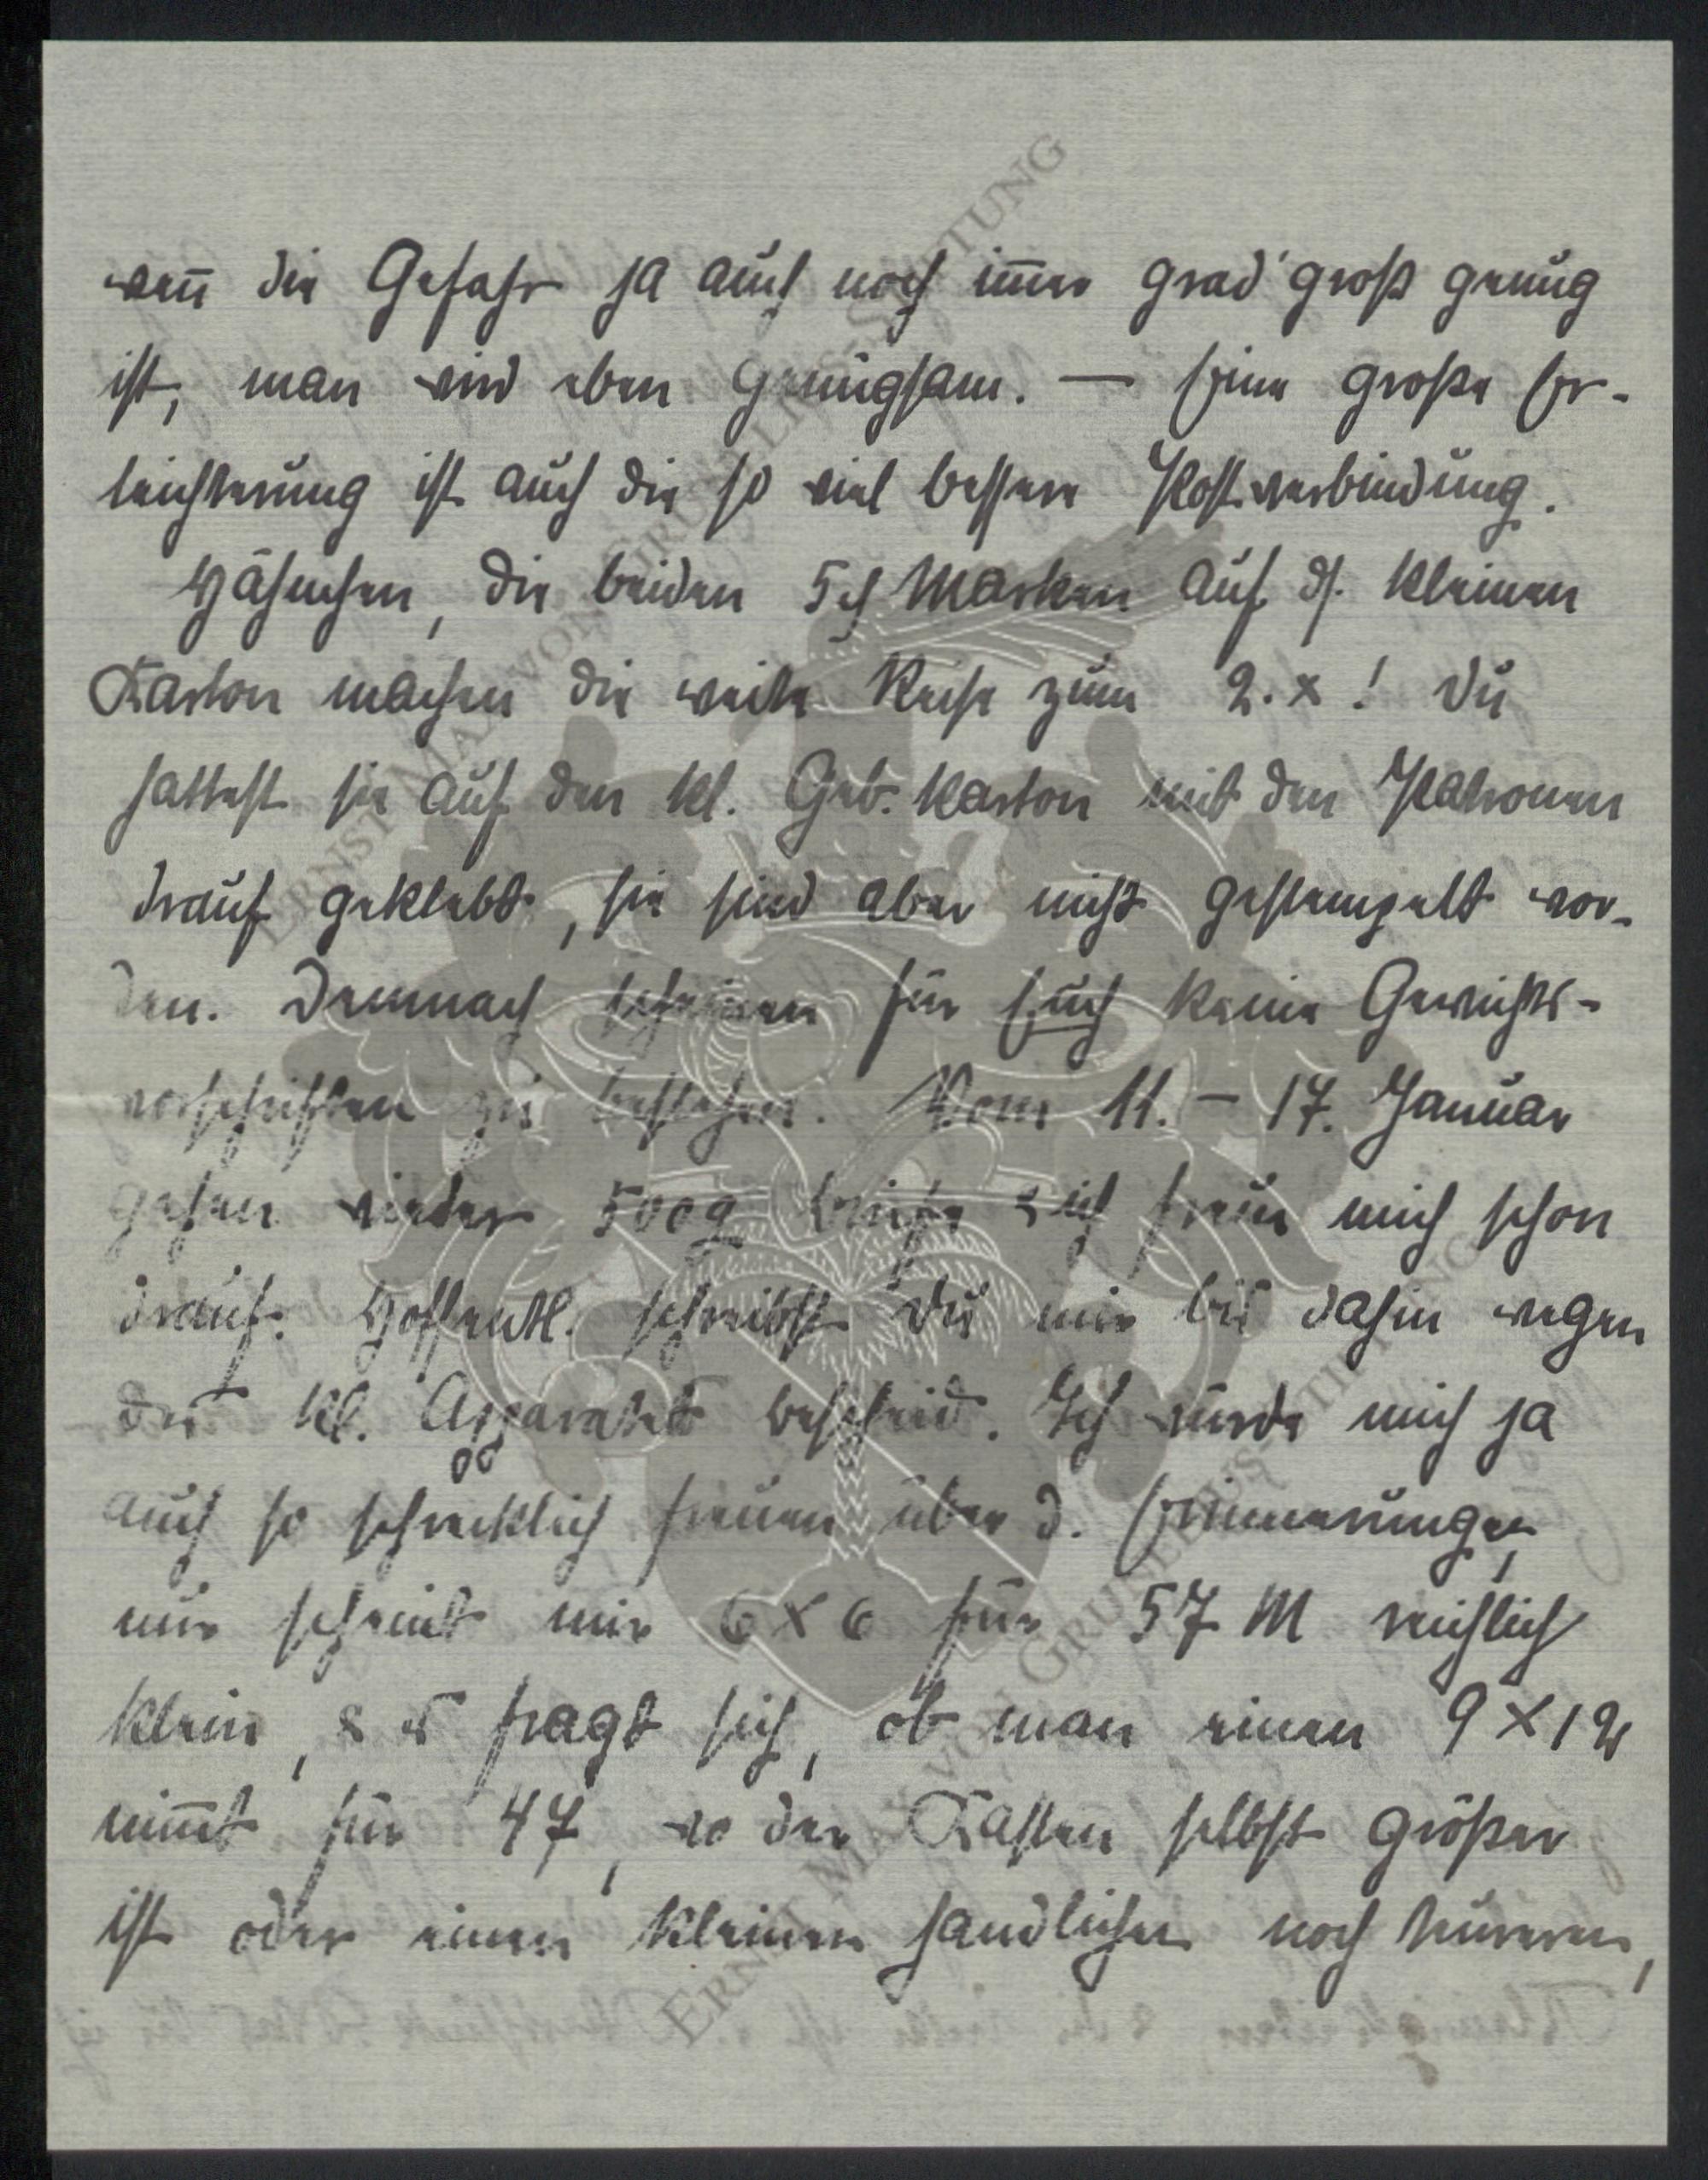 wen̅ die Gefahr ja auch noch im̅er grad' groß genug
ist, man wird eben genügsam. — Eine große Er-
leichterung ist auch die so viel bessere Postverbindung.
Häschen, die beiden 5 ₰ Marken auf ds. kleinen
Karton machen die weite Reise zum 2. x! Du
hattest sie auf den kl. Geb. karton mit den Patronen
drauf geklebt, sie sind aber nicht gestempelt wor-
den. Demnach scheinen für Euch keine Gewichts-
vorschriften zu bestehen. Vom 11. – 17. Januar
gehen wieder 500g Briefe & ich freue mich schon
drauf. Hoffentl. schreibst Du mir bis dahin wegen
des kl. Apparates bescheid. Ich würde mich ja
auch so schrecklich freuen über d. Erinnerungen,
nur scheint mir 6 x 6 für 57 M reichlich
klein, & es fragt sich, ob man einen 9 x 12
nim̅t für 47, wo der Kasten selbst größer
ist oder einen kleinen handlichen noch teureren,
ERNST MAX VON GRUNELIUS-STIFTUNG
ERNST MAX VON GRUNELIUS-STIFTUNG